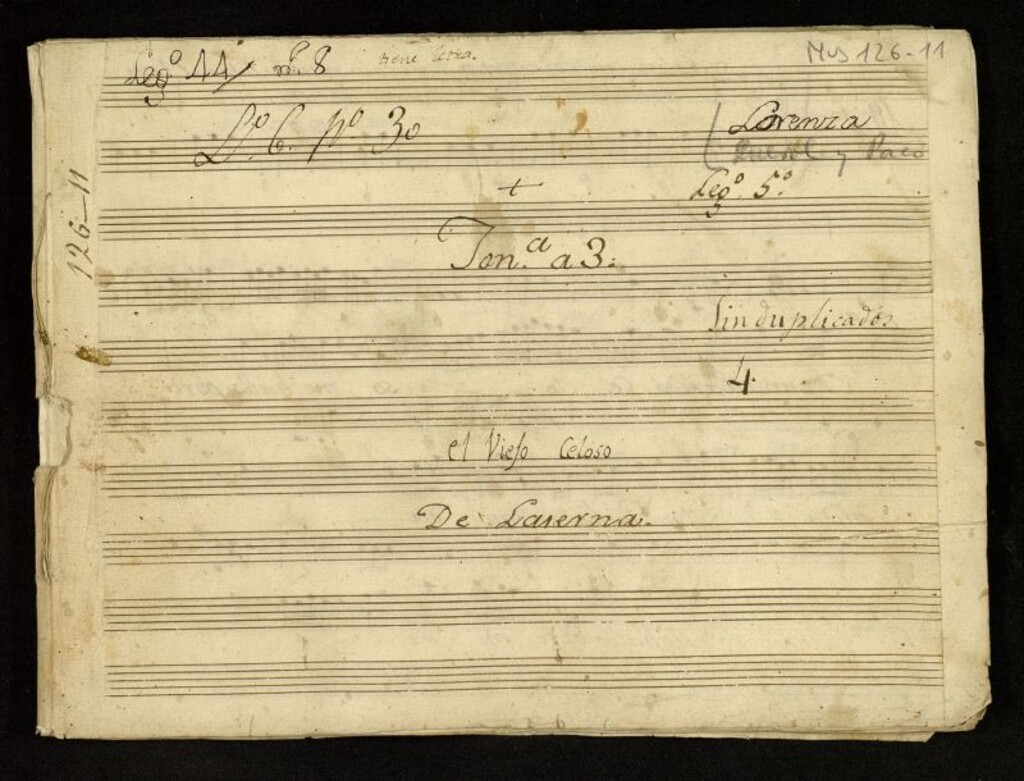 Leg.º 44 n.º 8 tiene letra. Mus 126-11
L.º C. Nº 30 Lorenza
y Paco
+ Leg.º 5.º
126-11
Ton.ª a 3.
Sin duplicados
4.
el Viejo Celoso
De Laserna.